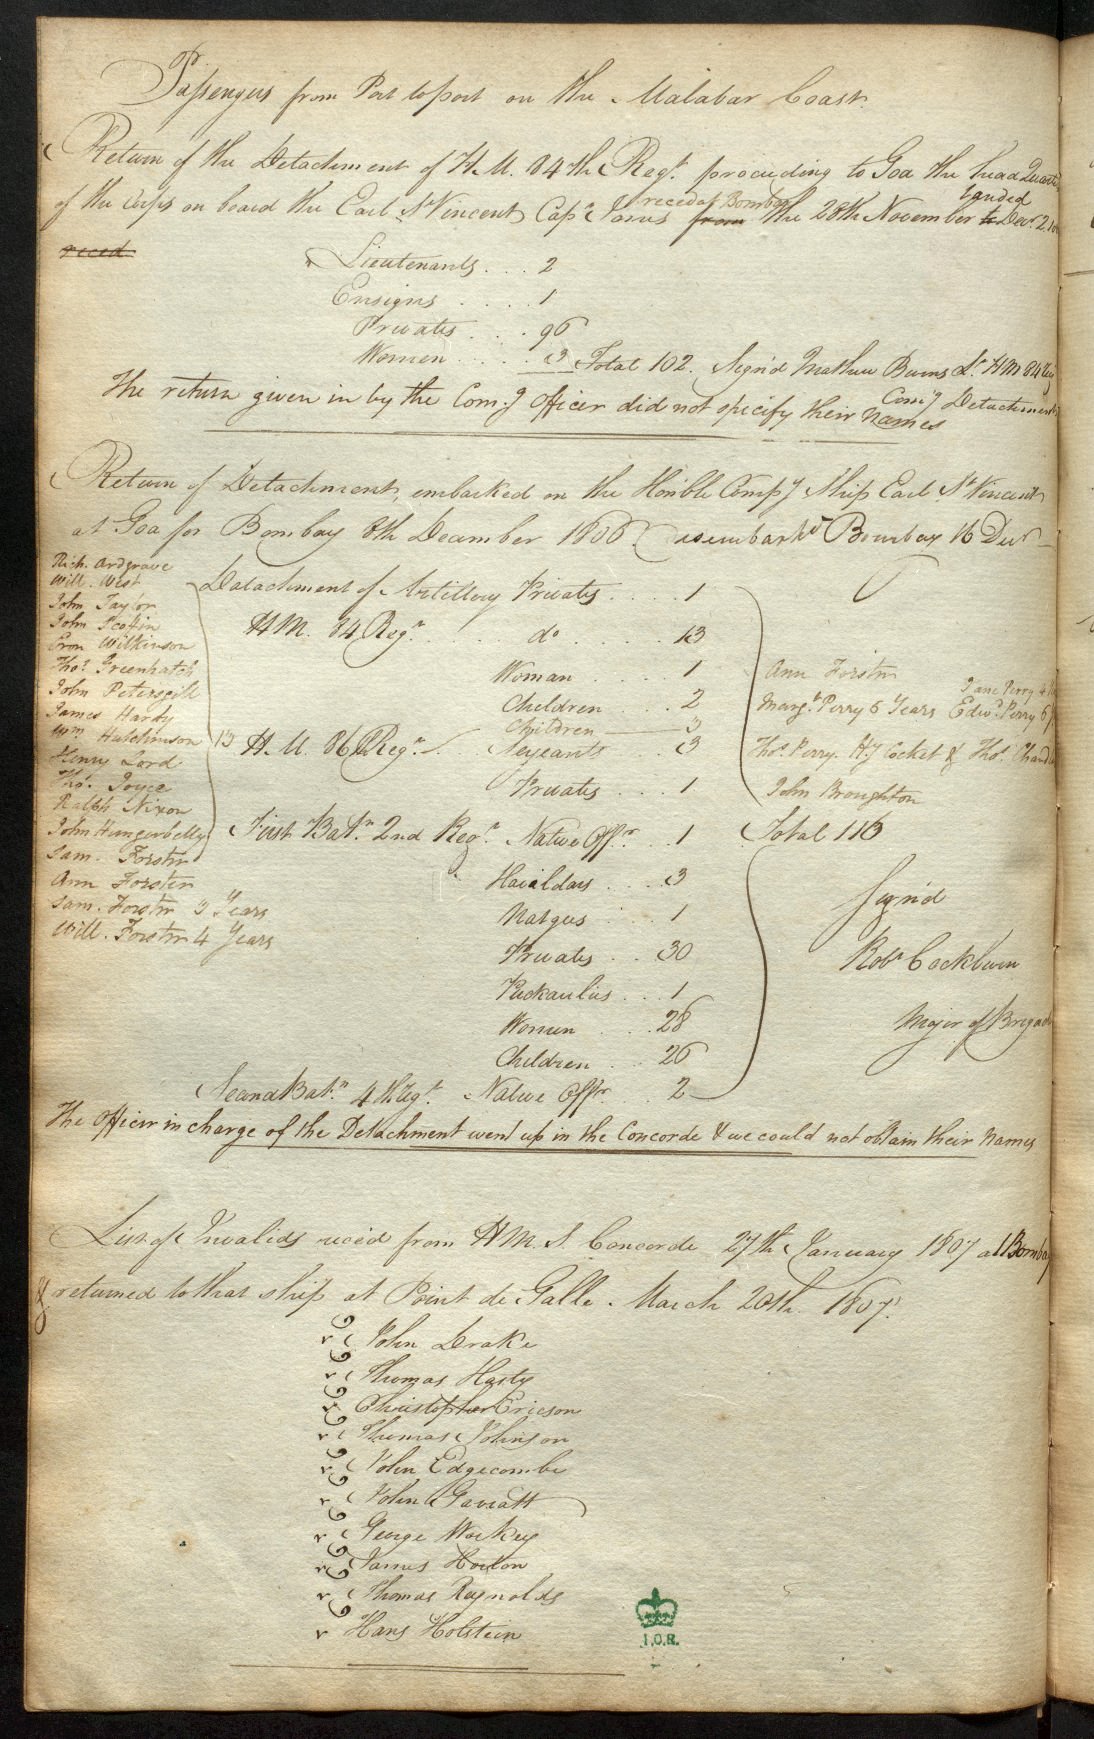 Passengers from Port to port on the Malabar Coast.
Return of the Detachment of H.M. 84th Regt. proceeding to Goa the head Quarters
of the Corps on board the Earl St Vincent Capn James from reced at Bombay the 28th November to landed Decr. 2
reced
Lieutenants . . . 2
Ensigns . . . . 1
Privates . . . . 96
Women . . . . . 3 Total 102. Signd Mathew Burns Lt. HM 84 Reg
The return given in by the Com.g Officer did not specify their names
Com.g Detachment
Return of Detachment, embarked on the Honble Compy Ship Earl St Vincent
at Goa for Bombay 8th December 1806 Disembarkd Bombay 16 Decr
Rich. Ardgrave
Will. West
John Taylor
John Scoftin
Eron Wilkinson
Thos Greenhatch
John Petersgill
James Hardy
Wm Hutchinson
Henry Lord
Thos. Joyce
Ralph Nixon
John Hungerbelly
Sam. Forster
Ann Forster
Sam. Forster 3 Years
Will. Forster 4 Years
13
Detachment of Artillery Privates . . . . 1
H.M. 84 Regt. . . . do . . . . . 13
Woman . . . . . 1
Children . . . 2
Children 3
H.M. 86 Regt. Serjeants . . 3
Privates . . . 1
First Batn. 2nd Regt. Native Offr. . . 1
Havildars . . . . 3
Naigues . . . 1
Privates . . . 30
Puckaulies . . . 1
Women . . . . 28
Children . . . 26
Second Batn. 4th Regt. Native Offr. . . 2
Ann Forster
Jane Perry 4
Margt. Perry 6 Years Edwd. Perry 6
Thos. Perry. Hy Cocket & Thos.
John Broughton
Total 116
Signd
Robt Cockburn
Major of Brigade
The Officer in charge of the Detachment went up in the Concorde & we could not obtain their Names
List of Invalids recied from H.M.S. Concorde 27th January 1807 at Bombay
& returned to that ship at Point de Galle March 20th. 1807.
r John Drake
r Thomas Hasty
r Christopher Ericson
r Thomas Johnson
r John Edgecombe
r John Garratt
r George Workey
r James Horton
r Thomas Reynolds
r Hans Holstein
I.O.R.